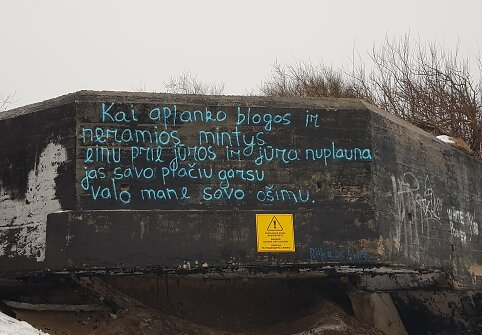 Kai aplanko blogos ir
neramios mintys
einu prie jūros ir jūra nuplauna
jas savo plačiu garsu
valo mane savo ošimu.